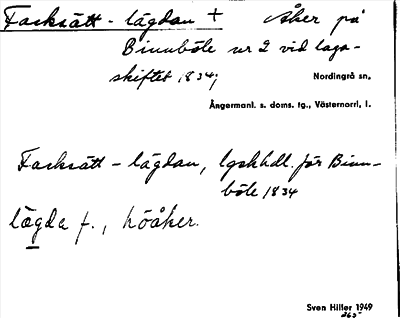 Farksätt-lägdan + Åker på
Binnböle nr 2 vid laga-
skiftet 1834;
Nordingrå sn,
Ångermanl. s. doms. tg., Västernorrl. l.
Farksätt-lägdan, lgskhdl. för Binn-
böle 1834
lägda f., höåker.
Sven Hiller 1949
265